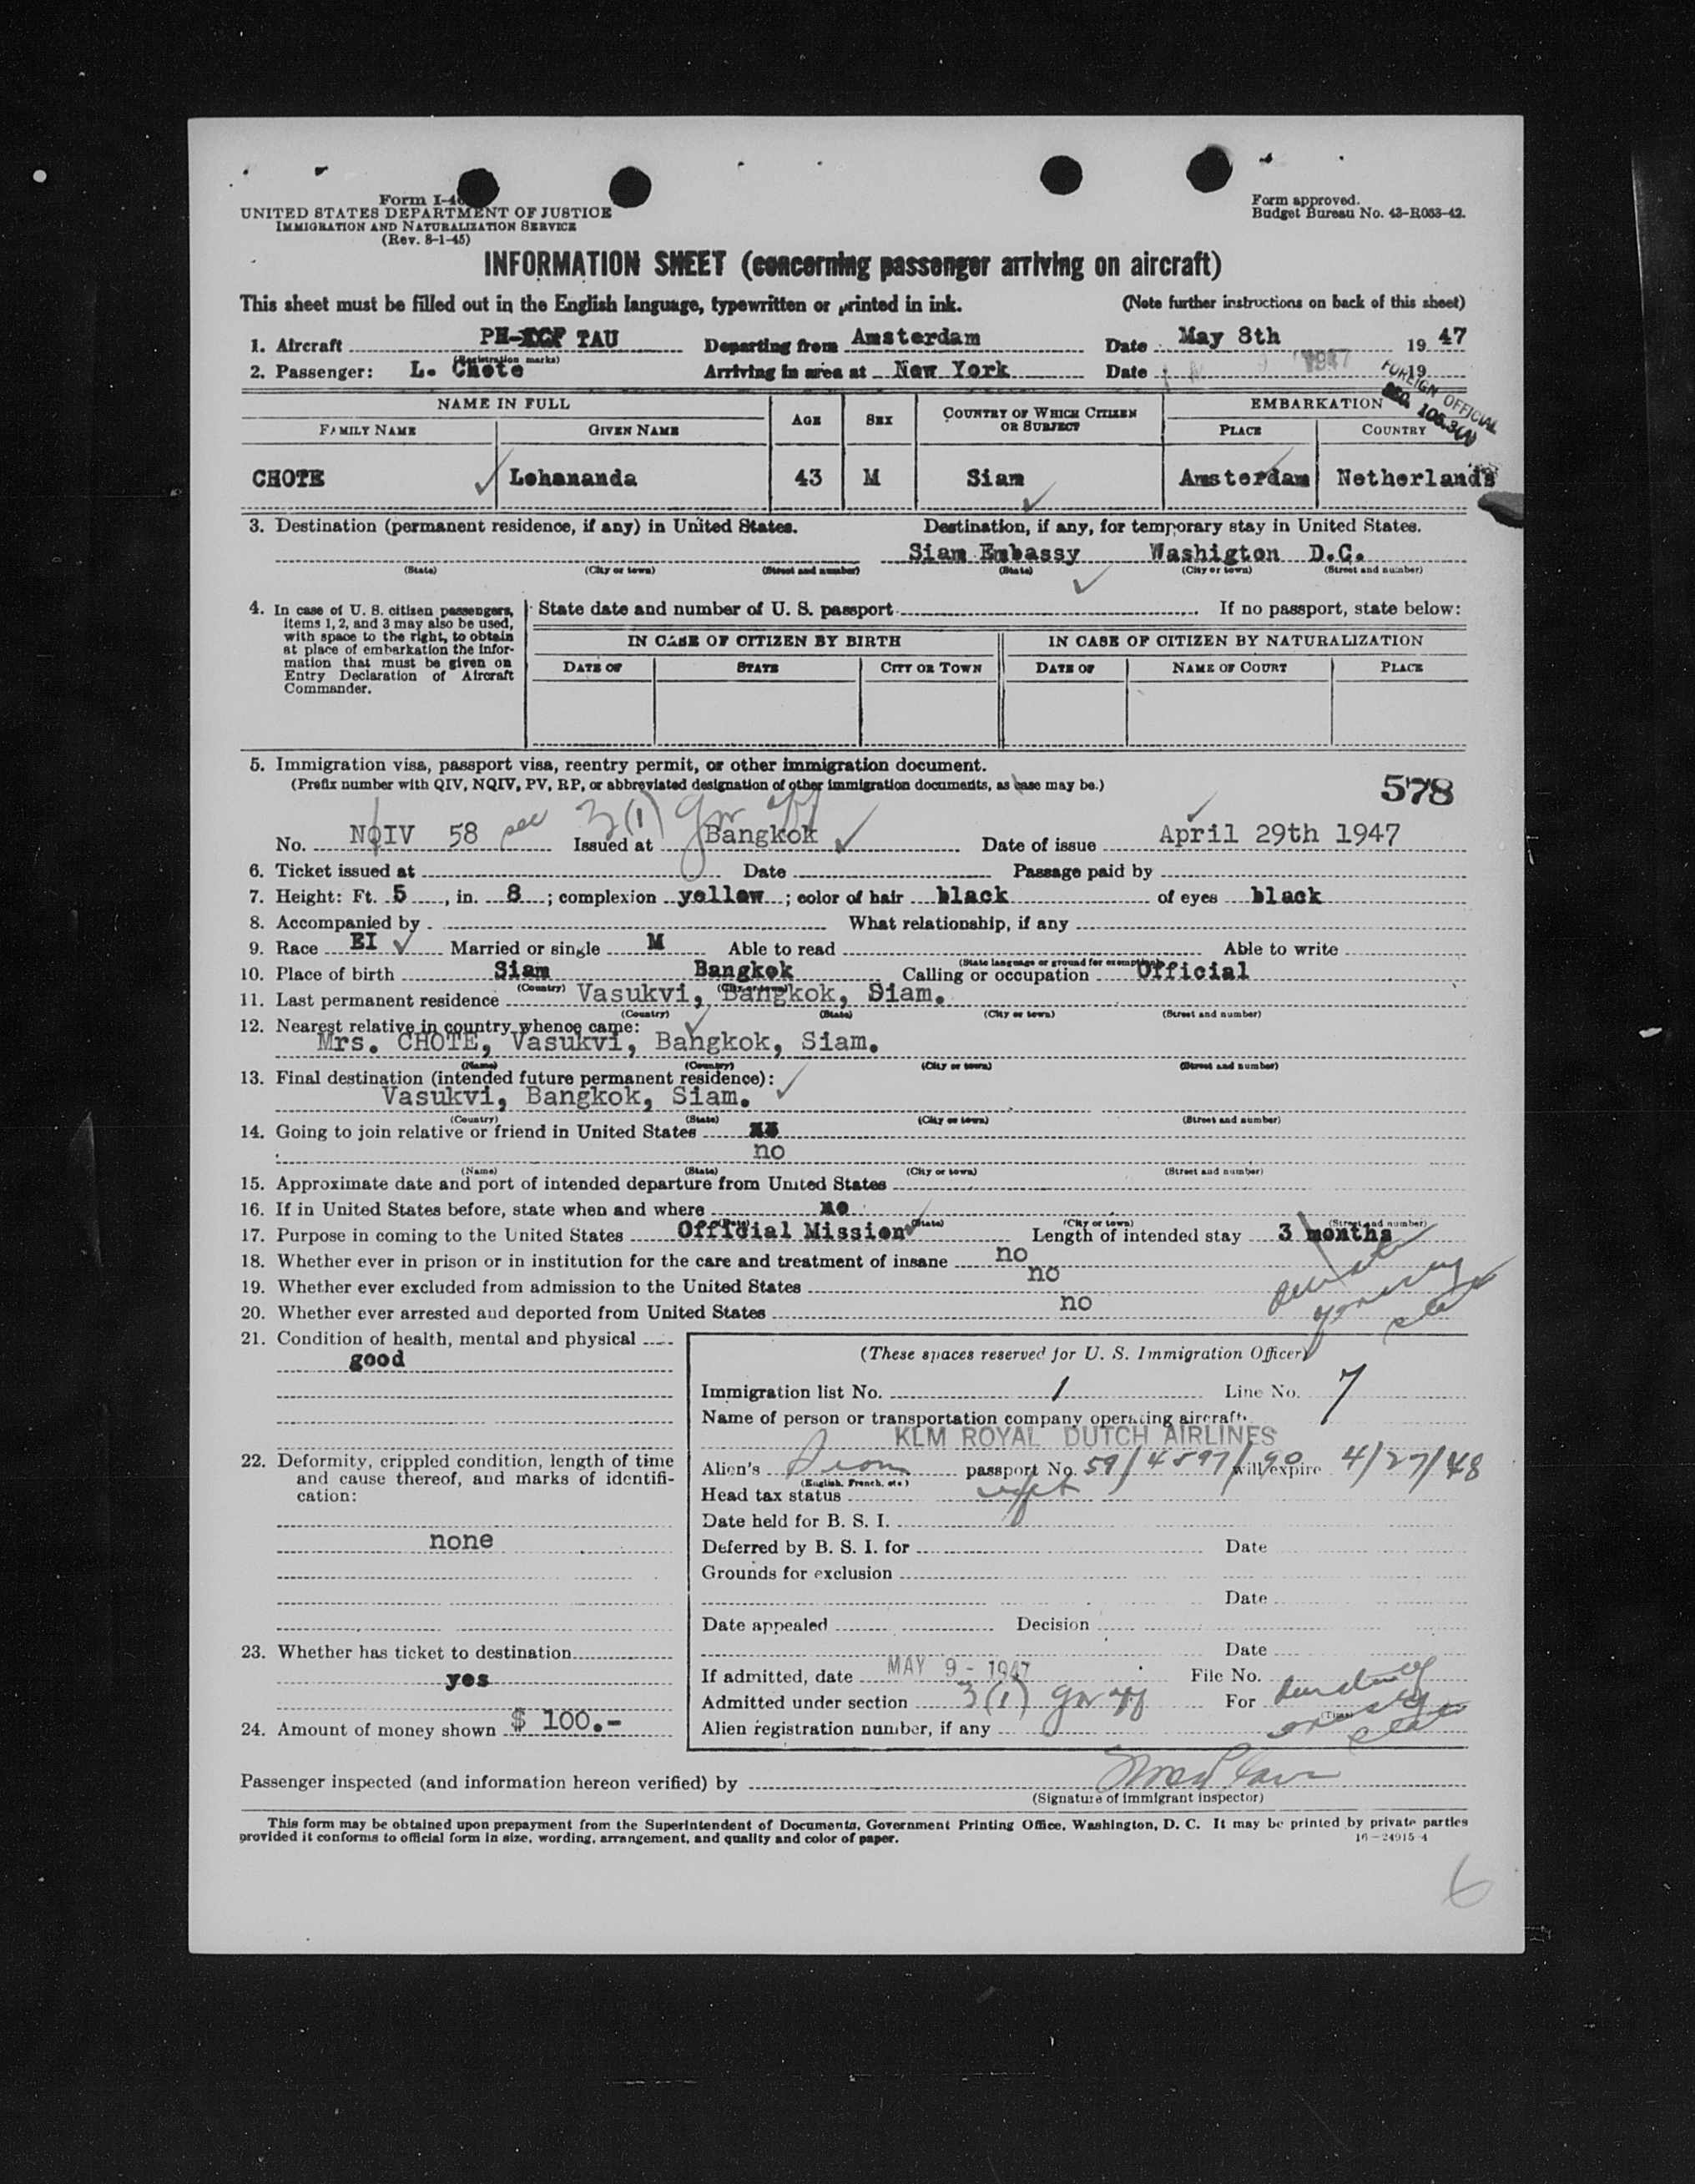 Form I-4
UNITED STATES DEPARTMENT OF JUSTICE
IMMIGRATION AND NATURALIZATION SERVICE
(Rev. 8-1-45)
Form approved.
Budget Bureau No. 43-R053-42.
INFORMATION SHEET (concerning passenger arriving on aircraft)
This sheet must be filled out in the English language, typewritten or printed in ink. (Note further instructions on back of this sheet)
1. Aircraft PH- TAU Departing from Amsterdam Date May 8th 19 47
(Registration marks)
2. Passenger: L. Chote Arriving in area at New York Date 1947 19
FOREIGN OFFICIAL
SEC. 105.3(A)
NAME IN FULL AGE SEX COUNTRY OF WHICH CITIZEN OR SUBJECT EMBARKATION
FAMILY NAME GIVEN NAME PLACE COUNTRY
CHOTE Lohananda 43 M Siam Amsterdam Netherlands
3. Destination (permanent residence, if any) in United States. Destination, if any, for temporary stay in United States.
Siam Embassy Washigton D.C.
(State) (City or town) (Street and number) (State) (City or town) (Street and number)
4. In case of U. S. citizen passengers, items 1, 2, and 3 may also be used, with space to the right, to obtain at place of embarkation the information that must be given on Entry Declaration of Aircraft Commander.
State date and number of U. S. passport If no passport, state below:
IN CASE OF CITIZEN BY BIRTH IN CASE OF CITIZEN BY NATURALIZATION
DATE OF STATE CITY OR TOWN DATE OF NAME OF COURT PLACE
5. Immigration visa, passport visa, reentry permit, or other immigration document.
(Prefix number with QIV, NQIV, PV, RP, or abbreviated designation of other immigration documents, as case may be.)
578
No. NQIV 58 sec 3(1) gov off Issued at Bangkok Date of issue April 29th 1947
6. Ticket issued at Date Passage paid by
7. Height: Ft. 5, in. 8; complexion yellow; color of hair black of eyes black
8. Accompanied by What relationship, if any
9. Race EI Married or single M Able to read Able to write
(State language or ground for exemption)
10. Place of birth Siam Bangkok Calling or occupation Official
(Country) (City or town)
11. Last permanent residence Vasukvi, Bangkok, Siam.
(Country) (State) (City or town) (Street and number)
12. Nearest relative in country whence came:
Mrs. CHOTE, Vasukvi, Bangkok, Siam.
(Name) (Country) (City or town) (Street and number)
13. Final destination (intended future permanent residence):
Vasukvi, Bangkok, Siam.
(Country) (State) (City or town) (Street and number)
14. Going to join relative or friend in United States
no
(Name) (State) (City or town) (Street and number)
15. Approximate date and port of intended departure from United States
16. If in United States before, state when and where no
(State) (City or town) (Street and number)
17. Purpose in coming to the United States Official Mission Length of intended stay 3 months
18. Whether ever in prison or in institution for the care and treatment of insane no
19. Whether ever excluded from admission to the United States no
20. Whether ever arrested and deported from United States no
21. Condition of health, mental and physical
good
(These spaces reserved for U. S. Immigration Officer)
Immigration list No. 1 Line No. 7
Name of person or transportation company operating aircraft
KLM ROYAL DUTCH AIRLINES
22. Deformity, crippled condition, length of time and cause thereof, and marks of identification:
none
Alien's Siam passport No. 59/4597/90 will expire 4/27/48
(English, French, etc.)
Head tax status
Date held for B. S. I.
Deferred by B. S. I. for Date
Grounds for exclusion
Date
Date appealed Decision
Date
23. Whether has ticket to destination
yes
If admitted, date MAY 9 - 1947 File No.
Admitted under section 3(1) gov off For
(Time)
24. Amount of money shown $ 100.-
Alien registration number, if any
Passenger inspected (and information hereon verified) by
(Signature of immigrant inspector)
This form may be obtained upon prepayment from the Superintendent of Documents, Government Printing Office, Washington, D. C. It may be printed by private parties
provided it conforms to official form in size, wording, arrangement, and quality and color of paper.
16-24915-4
6